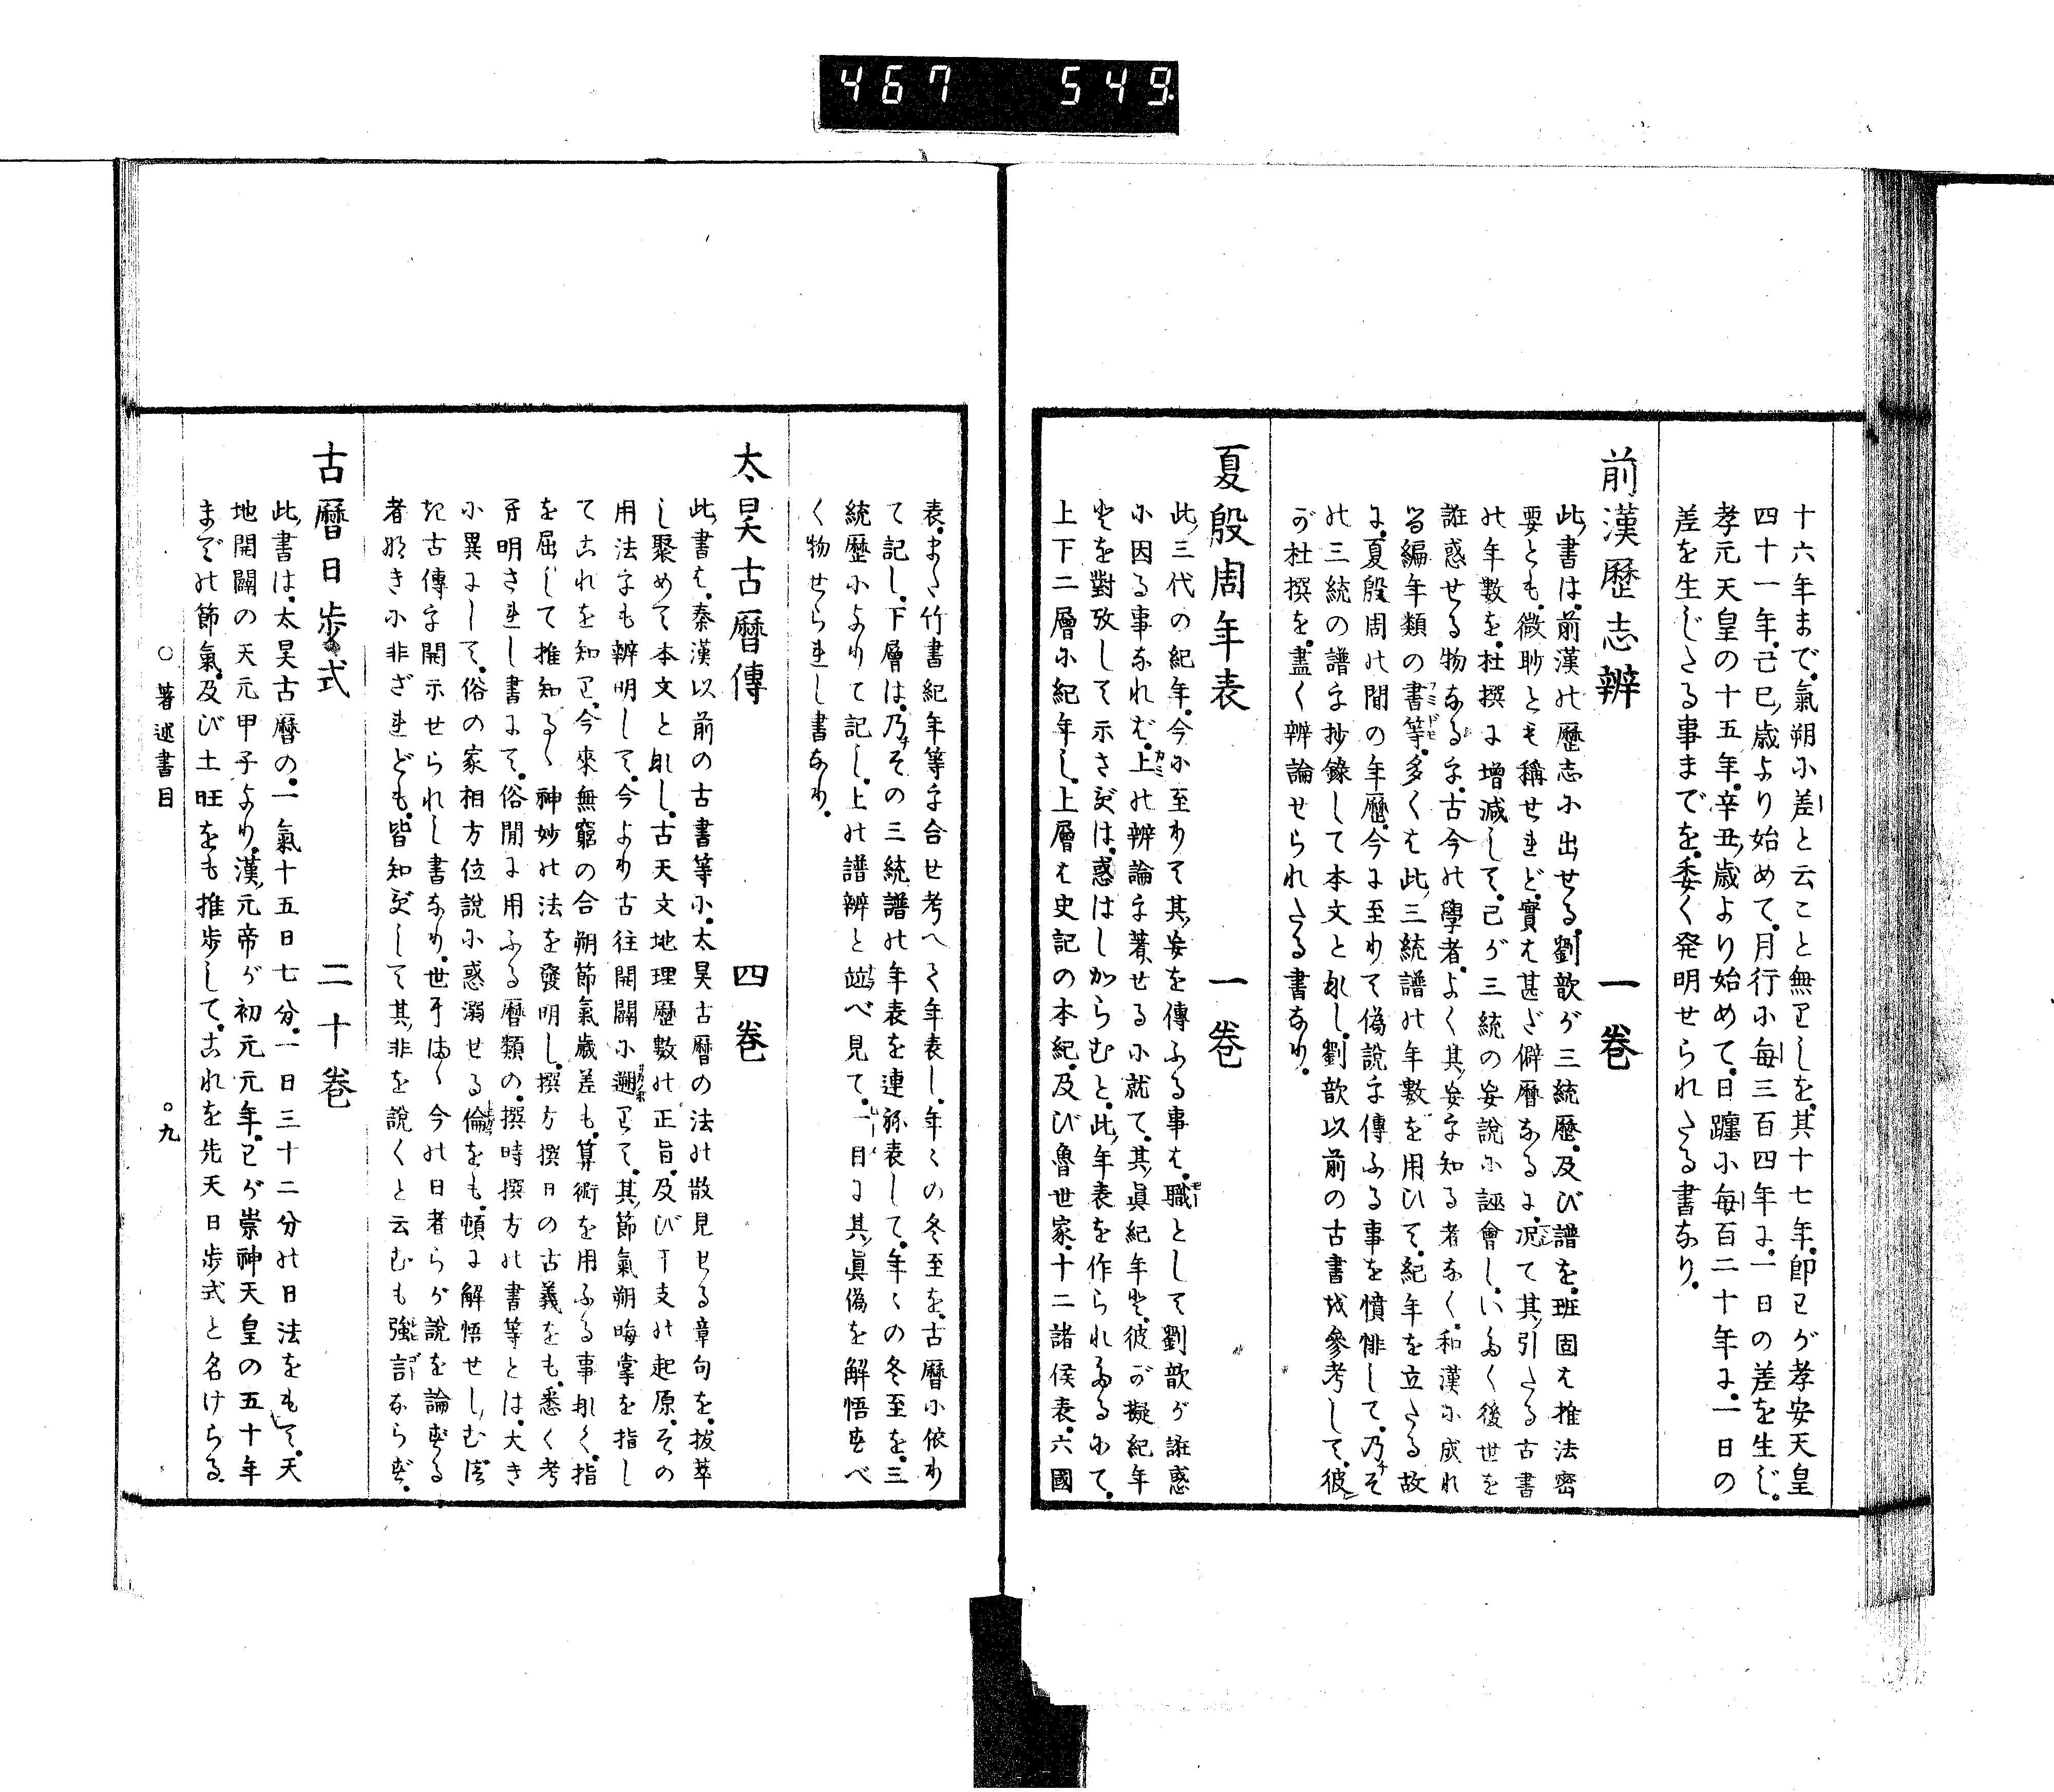 467 549
十六年まで。氣朔小差と云こと無りしを。其十七年。卽わが孝安天皇
四十一年。己巳歳より始めて。月行小每三百四年に。一日の差を生じ。
孝元天皇の十五年。辛丑歳より始めて。日躔小每百二十年に。一日の
差を生じたる事までを。委く発明せられたる書なり。
前漢歷志辨 一卷
此書は。前漢の歷志に出せる。劉歆が三統歷。及び譜を。班固は推法密
要とも。微眇とも稱せれど。實は甚ざ僻曆なるに。况て其引たる古書
の年數を。杜撰に增減して。己が三統の妄說に誣會し。いたく後世を
誑惑せる物なるを。古今の學者。よく其妄を知る者なく。和漢に成れ
る編年類の書等。多くは此三統譜の年數を用ひて。紀年を立たる故
に。夏殷周の間の年歷。今に至りて偽說を傳ふる事を憤悱して。乃チそ
の三統の譜を抄錄して本文と爲し。劉歆以前の古書を參考して。彼
が杜撰を。盡く辨論せられたる書なり。
夏殷周年表 一卷
此三代の紀年。今に至りて其妄を傳ふる事は。職として劉歆が誑惑
に因る事なれば。上の辨論を著せるに就て。其眞紀年と。彼が擬紀年
とを對攷して示さずは。惑はしからむと。此年表を作られたるにて。
上下二層に紀年し。上層は史記の本紀。及び魯世家。十二諸侯表。六國
表。また竹書紀年等を合せ考へて年表し。年々の冬至を。古曆に依り
て記し。下層は。乃チその三統譜の年表を連綴表して。年々の冬至を。三
統歷によりて記し。上の譜辨と竝べ見て。一目に其眞偽を解悟すべ
く物せられし書なり。
太昊古曆傳 四卷
此書は。秦漢以前の古書等に。太昊古曆の法の散見せる章句を。拔萃
し聚めて本文と爲し。古天文地理歷數の正旨。及び干支の起原。その
用法をも辨明して。今より古往開闢に遡りて。其節氣朔晦掌を指し
てこれを知り。今來無窮の合朔節氣歲差も。算術を用ふる事無く。指
を屈して推知る神妙の法を發明し。撰方撰日の古義をも。悉く考
へ明されし書にて。俗間に用ふる曆類の。撰時撰方の書等とは。大き
に異にして。俗の家相方位說に惑溺せる倫をも。頓に解悟せしむばき
古傳を開示せられし書なり。世に今の日者らが說を論ずる
者無きに非ざれども。皆知ずして其非を說くと云むも强言ならず。
古曆日步式 二十卷
此書は。太昊古曆の。一氣十五日七分。一日三十二分の日法をもて。天
地開闢の天元甲子より。漢元帝が初元元年。わが崇神天皇の五十年
までの節氣。及び土旺をも推步して。これを先天日步式と名けらる。
○著述書目 ○九